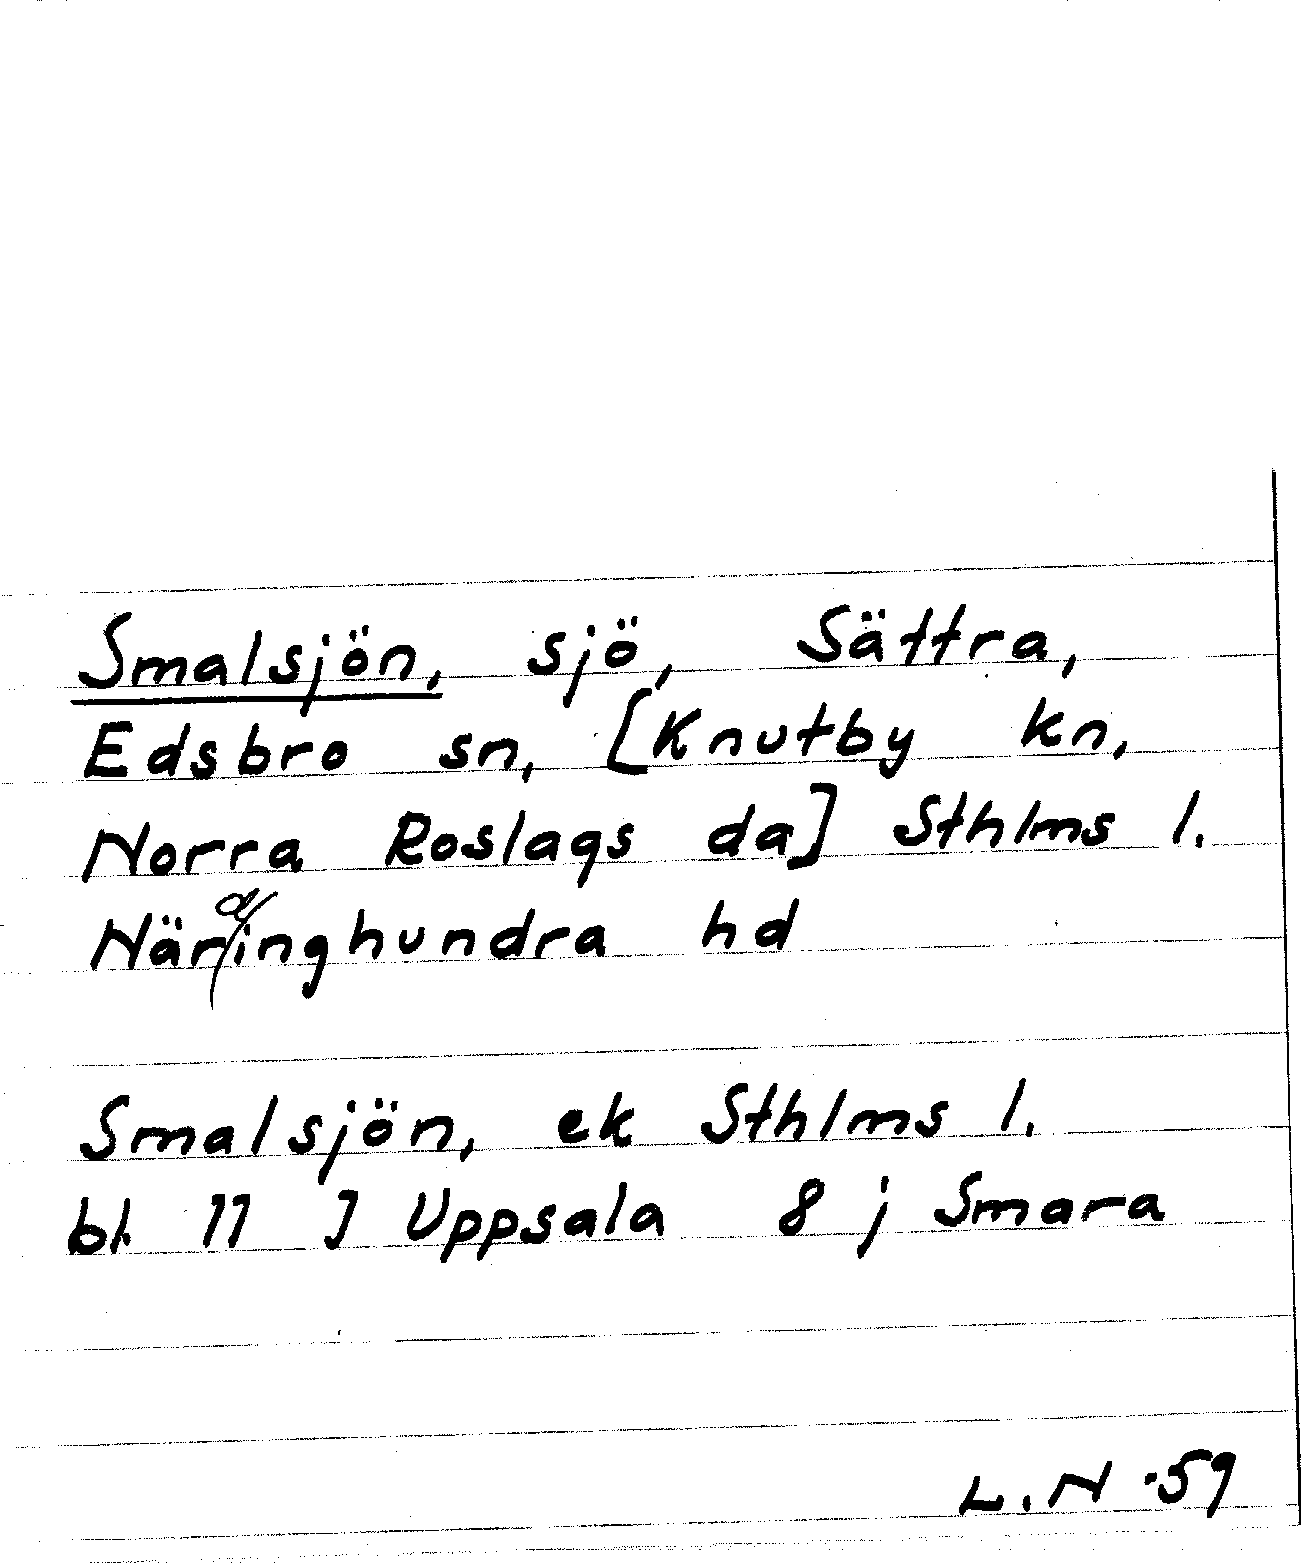 Smalsjön, sjö, Sättra,
Edsbro sn, [Knutby kn,
Norra Roslags da] Sthlms l.
Närdinghundra hd
Smalsjön, ek Sthlms l.
bl. 11 J Uppsala 8 j Smara
L.N -59